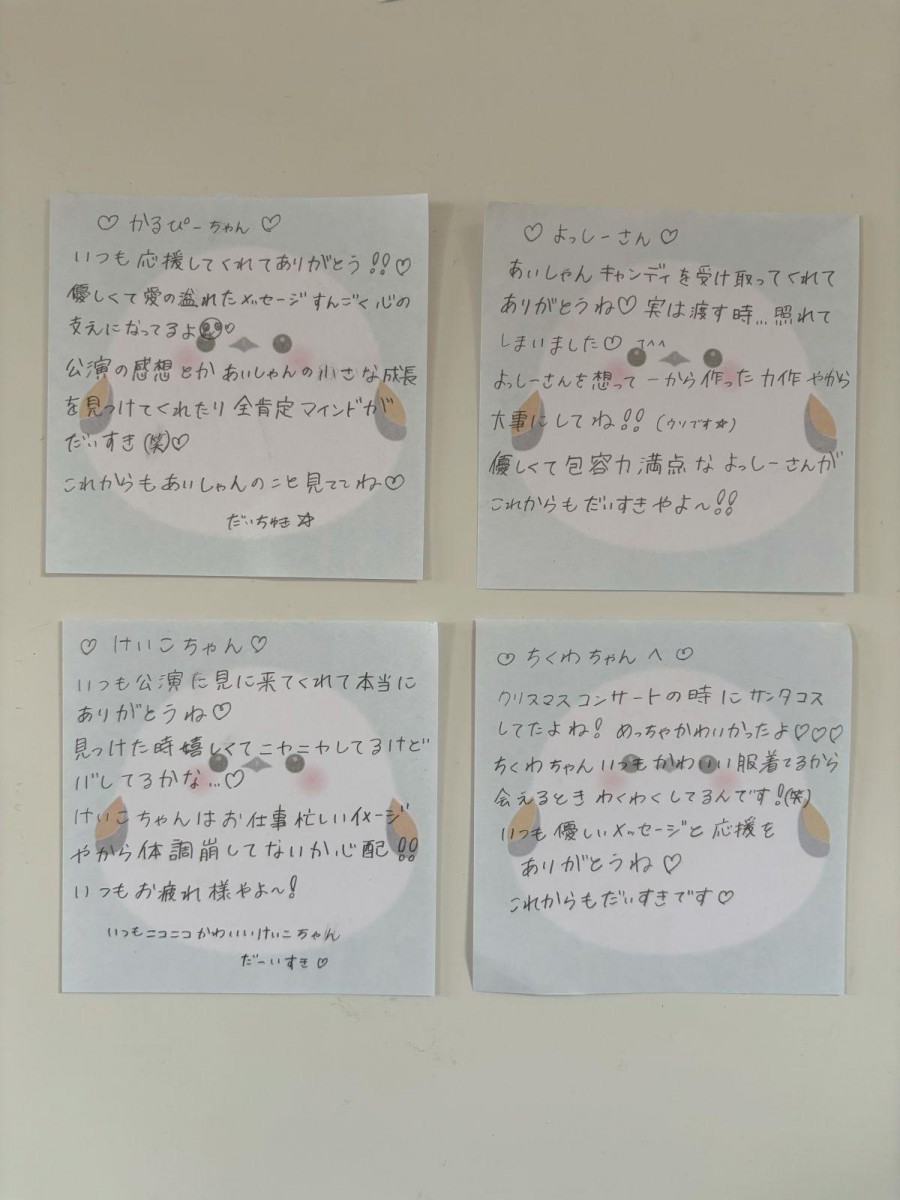 ♡ かるぴーちゃん ♡
いつも応援してくれてありがとう!!♡
優しくて愛の溢れたメッセージすんごく心の
支えになってるよ♡
公演の感想とかあいしゃんの小さな成長
を見つけてくれたり全肯定マインドが
だいすき(笑)♡
これからもあいしゃんのこと見ててね♡
だいちゅき☆
♡ よっしーさん ♡
あいしゃんキャンディを受け取ってくれて
ありがとうね♡ 実は渡す時…照れて
しまいました♡
よっしーさんを想って一から作った力作やから
大事にしてね!! (ウソです☆)
優しくて包容力満点なよっしーさんが
これからもだいすきやよ〜!!
♡ けいこちゃん♡
いつも公演に見に来てくれて本当に
ありがとうね♡
見つけた時嬉しくてニヤニヤしてるけど
バレてるかな…♡
けいこちゃんはお仕事忙しいイメージ
やから体調崩してないか心配!!
いつもお疲れ様やよ〜!
いつもニコニコかわいいけいこちゃん
だーいすき♡
♡ ちくわちゃんへ ♡
クリスマスコンサートの時にサンタコス
してたよね! めっちゃかわいかったよ♡♡♡
ちくわちゃんいつもかわいい服着てるから
会えるときわくわくしてるんです!(笑)
いつも優しいメッセージと応援を
ありがとうね♡
これからもだいすきです♡